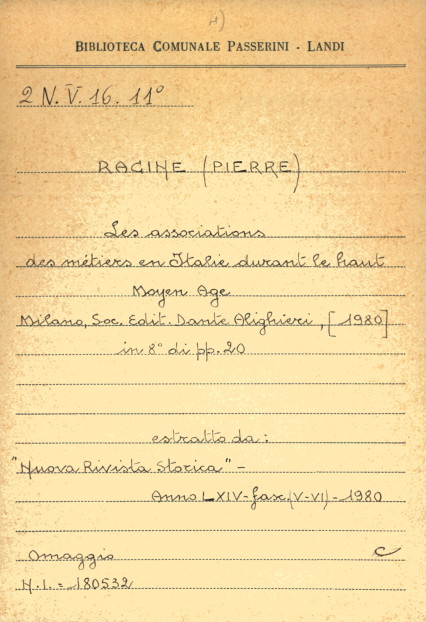 4)
BIBLIOTECA COMUNALE PASSERINI - LANDI
2 N. V. 16. 11°
RACINE (PIERRE)
Les associations
des métiers en Italie durant le haut
Moyen Age
Milano, Soc. Edit. Dante Alighieri, [1980]
in 8° di pp. 20
estratto da:
"Nuova Rivista Storica" -
Anno LXIV - fasc. (V-VI) - 1980
Omaggio C
N.I. = 180532